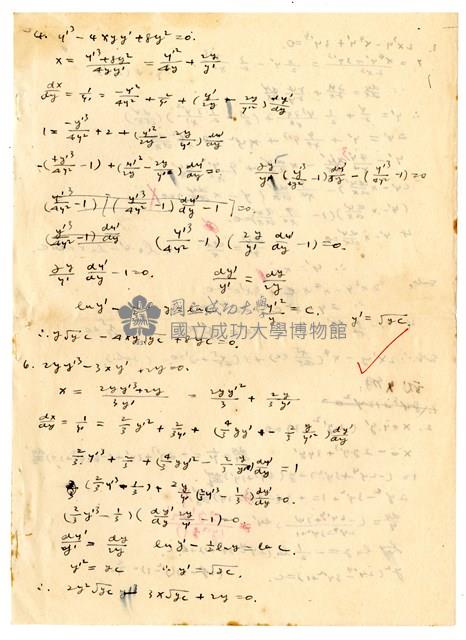 4. y'³ - 4xyy' + 8y² = 0.
x = (y'³ + 8y²)/(4yy') = y'²/(4y) + 2y/y'
dx/dy = 1/y' = -y'²/(4y²) + 2/y' + (y'/(2y) - 2y/y'²) dy'/dy
1 = -y'³/(4y²) + 2 + (y'²/(2y) - 2y/y') dy'/dy
-(y'³/(4y²) - 1) + (y'²/(2y) - 2y/y') dy'/dy = 0    2y/y' (y'³/(4y²) - 1) dy'/dy - (y'³/(4y²) - 1) = 0
(y'³/(4y²) - 1) dy'/dy    (y'³/(4y²) - 1)(2y/y' dy'/dy - 1) = 0.
2y/y' dy'/dy - 1 = 0.    dy'/y' = dy/2y
ln y' -    y'²/y = c.    y' = √yc.
國立成功大學
國立成功大學博物館
∴ y√yc - 4xy√yc + 8y² = 0.
6. 2yy'³ - 3xy' + 2y = 0.
x = (2yy'³ + 2y)/(3y') = 2yy'²/3 + 2y/(3y')
dx/dy = 1/y' = 2/3 y'² + 2/(3y') + (4/3 yy' - 2/3 y/y'²) dy'/dy
2/3 y'³ + 2/3 + (4/3 yy'² - 2/3 y/y') dy'/dy = 1
(2/3 y'³ - 1/3) + 2y/y' (2/3 y'³ - 1/3) dy'/dy = 0.
(2/3 y'³ - 1/3)(dy'/dy 2y/y' - 1) = 0
dy'/y' = dy/2y    ln y' - ½ ln y = ln c.
y'² = yc    ∴ y' = √yc.
∴ 2y²√yc - 3x√yc + 2y = 0.